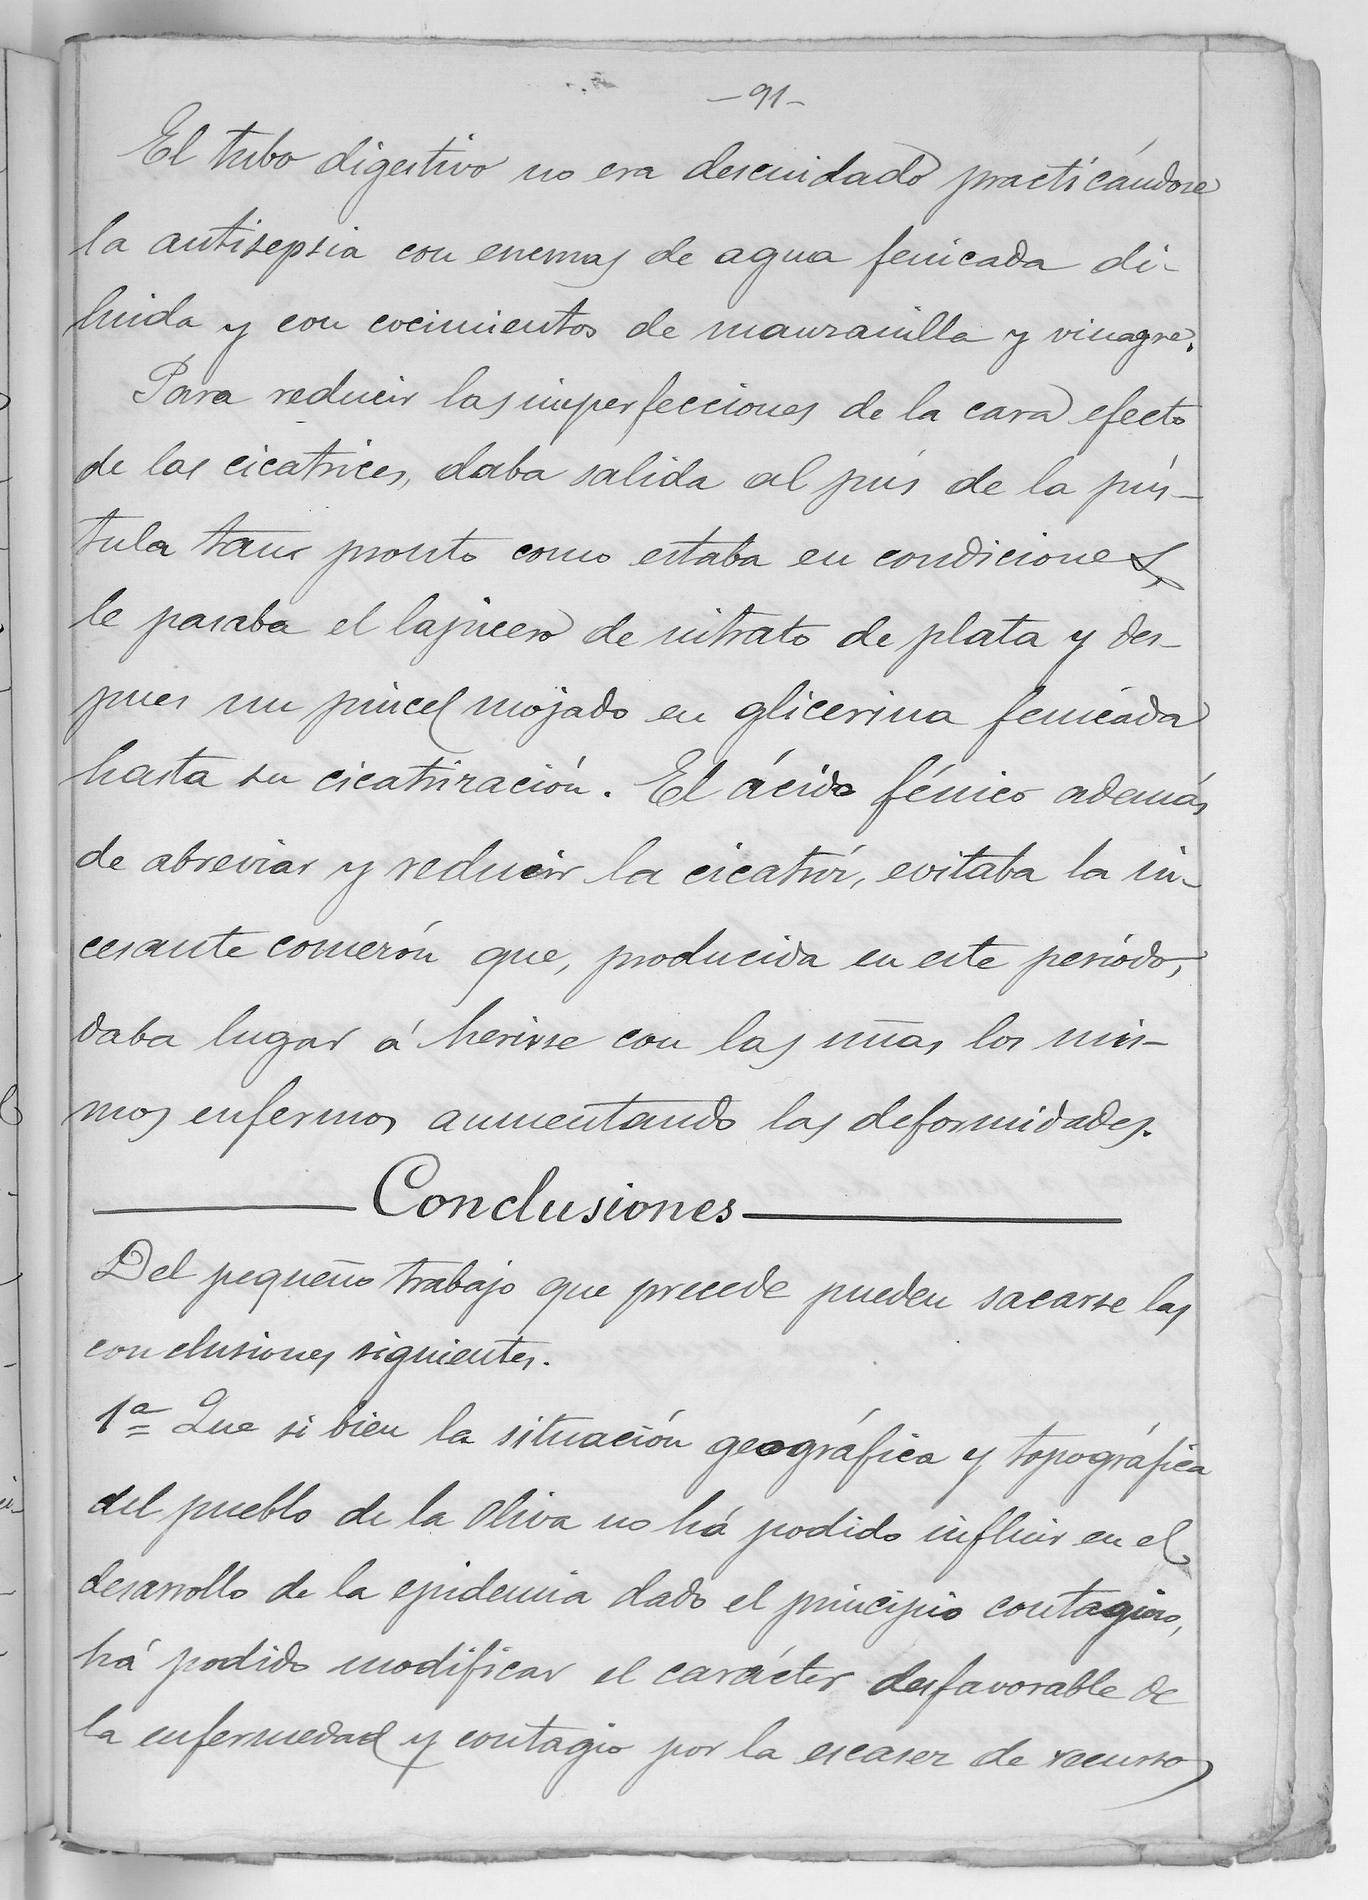 -91-
El tubo digestivo no era descuidado practicándose
la antisepsia con enemas de agua fenicada di-
luida y con cocimientos de manzanilla y vinagre.
Para reducir las imperfecciones de la cara efecto
de las cicatrices, daba salida al pús de la pús-
tula tan pronto como estaba en condiciones,
le pasaba el lapicero de nitrato de plata y des-
pues un pincel mojado en glicerina fenicada
hasta su cicatrización. El ácido fénico además
de abreviar y reducir la cicatríz, evitaba la in-
cesante comezón que, producida en este periódo,
daba lugar á herirse con las uñas los mis-
mos enfermos aumentando las deformidades.
Conclusiones
Del pequeño trabajo que precede pueden sacarse las
conclusiones siguientes.
1ª Que si bien la situación geográfica y topográfica
del pueblo de la Oliva no há podido influir en el
desarrollo de la epidemia dado el principio contagioso,
há podido modificar el carácter desfavorable de
la enfermedad y contagio por la escasez de recursos